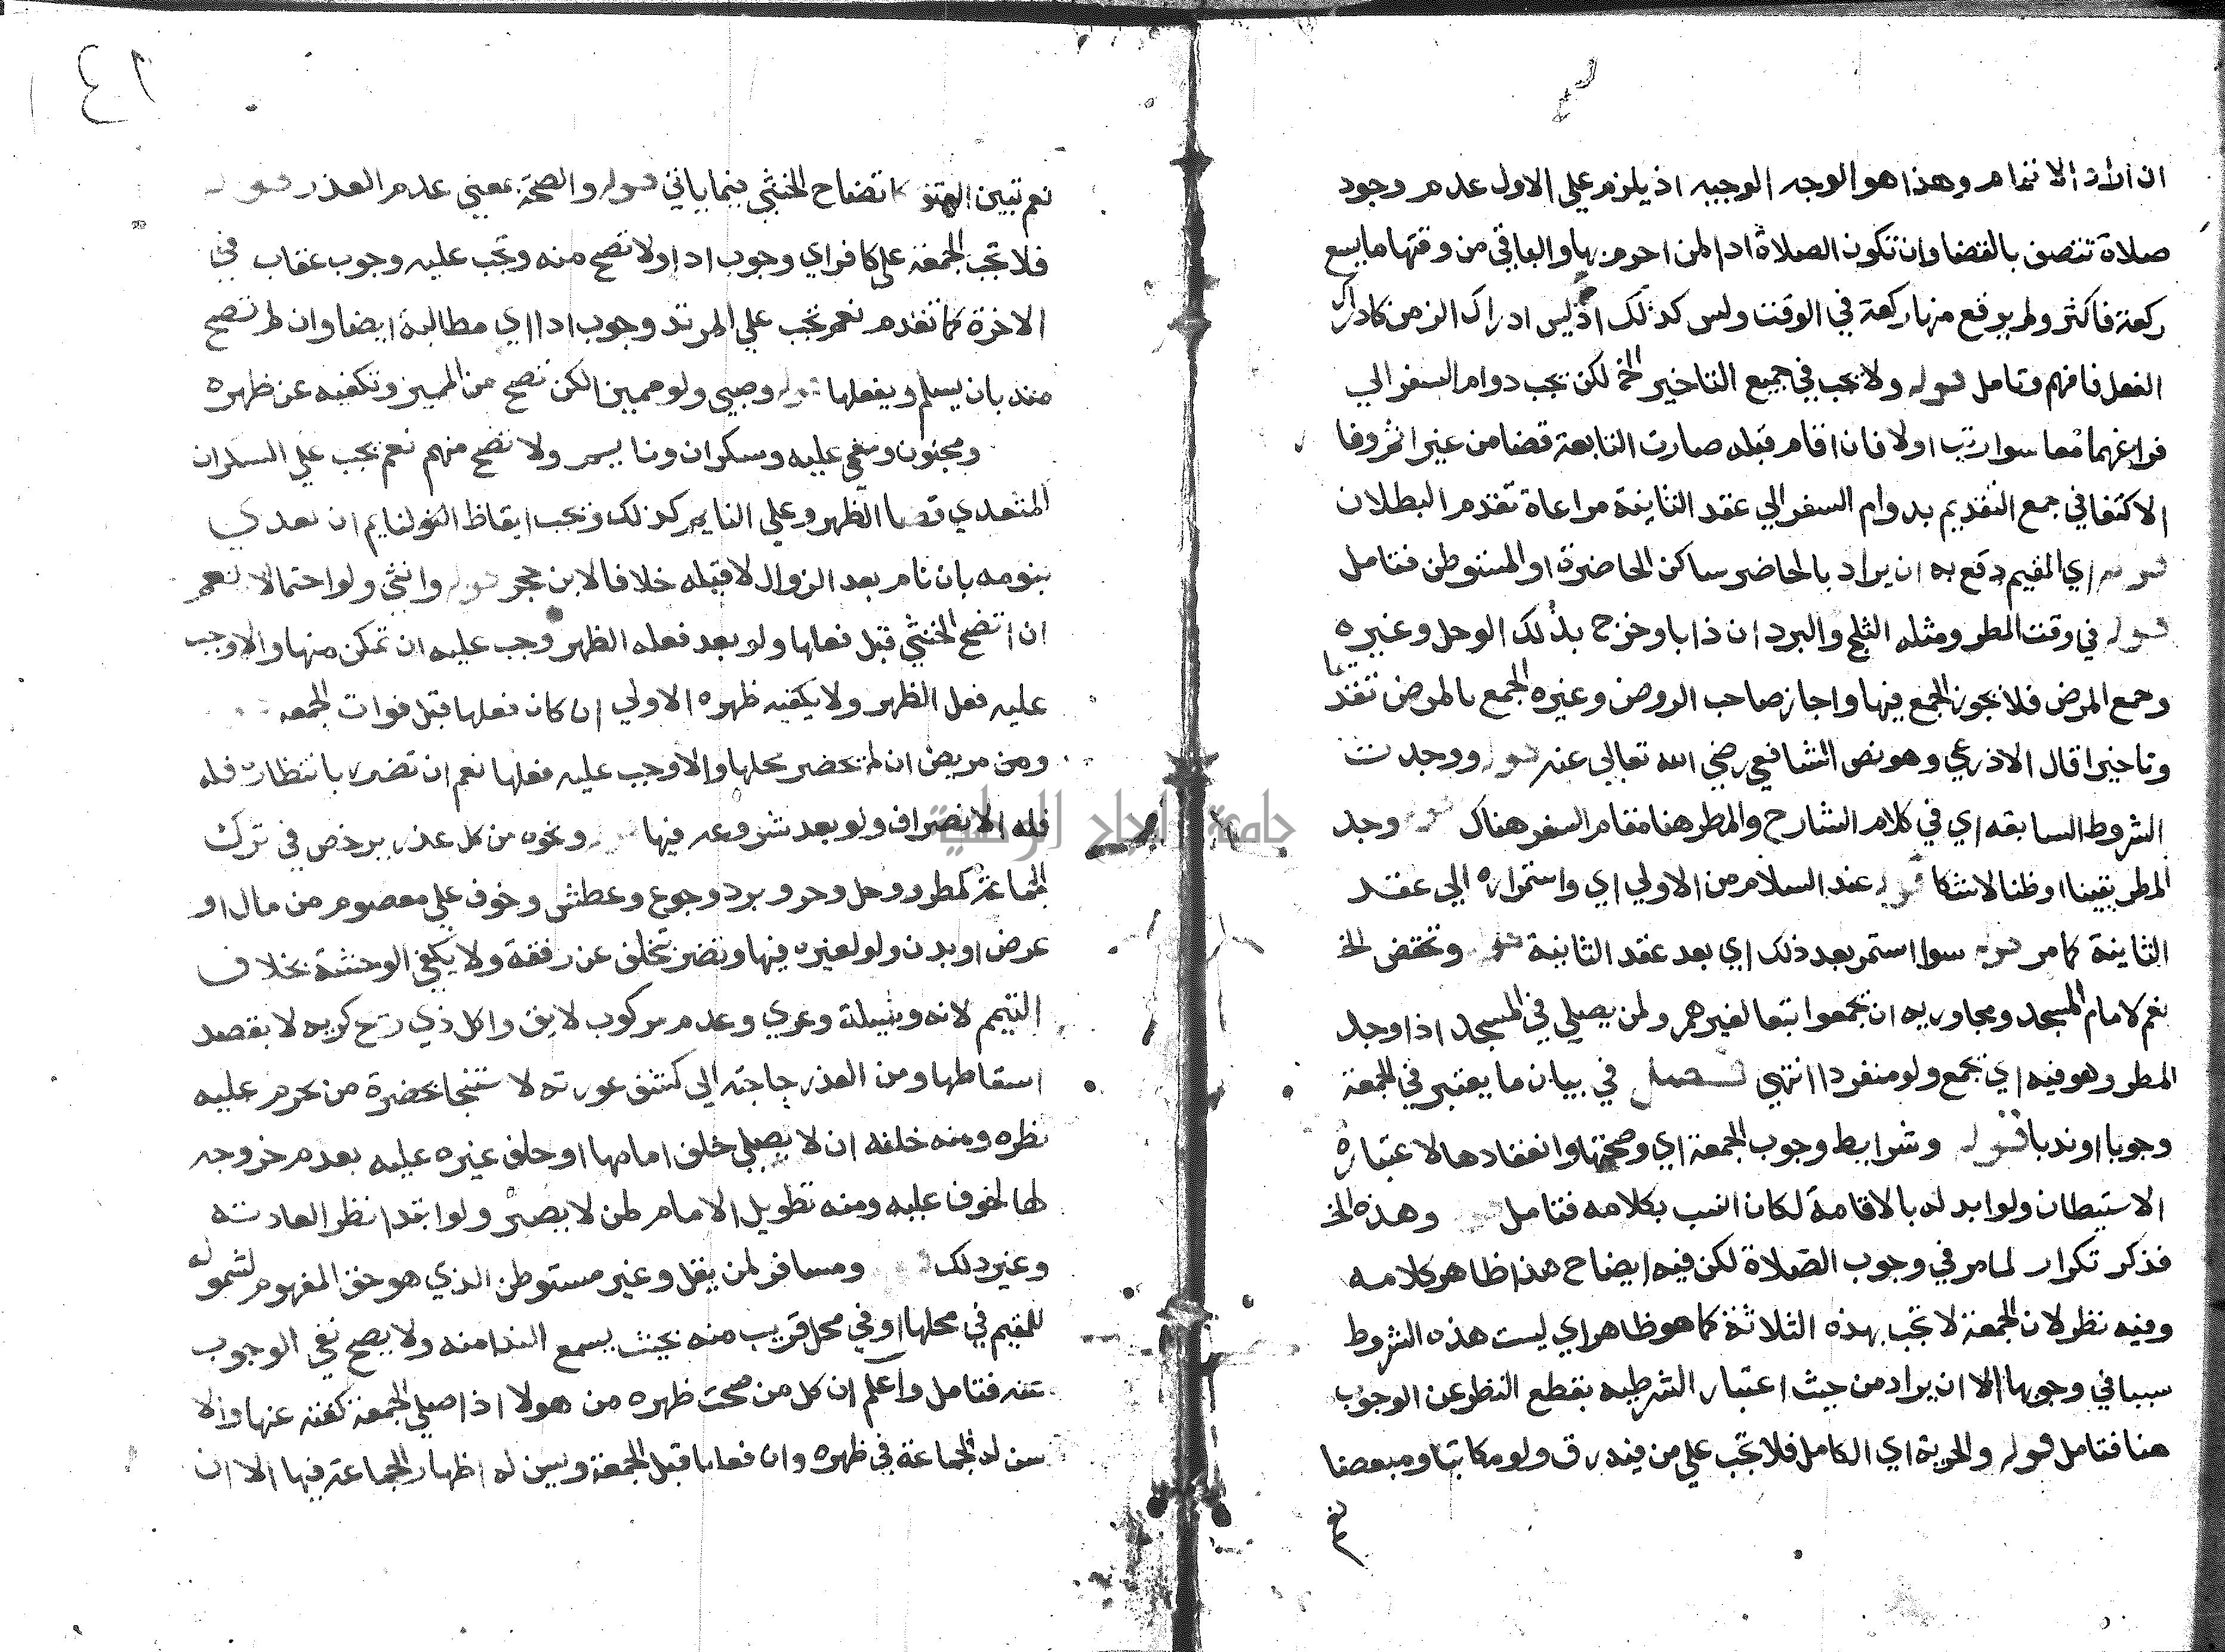 ان اراد الاتمام وهذا هو الوجه الوجيه اذ يلزم على الاول عدم وجود
صلاة تتصف بالقضا وان تكون الصلاة ادا لمن احرم بها والباقي من وقتها ما يسع
ركعة فاكثر ولم يوقع منها ركعة في الوقت وليس كذلك اذ ليس ادراك الزمن كادراك
الفعل فافهم وتامل قوله ولا يجب في جميع التاخير الخ لكن يجب دوام السفر الي
فراغهما معا سوا رتب اولا فان اقام قبله صارت التابعة قضا من غير اثم وفا
الاكتفا في جمع التقديم بدوام السفر الي عقد الثانية مراعاة تقدم البطلان
قوله اي المقيم دفع به ان يراد بالحاضر ساكن الحاضرة او المستوطن فتامل
قوله في وقت المطر ومثله الثلج والبرد ان ذابا وخرج بذلك الوحل وغيره
وجمع المرض فلا يجوز الجمع فيها واجاز صاحب الروض وغيره الجمع بالمرض تقديما
وتاخيرا قال الاذرعي وهو نص الشافعي رضي الله تعالي عنه قوله ووجدت
الشروط السابقه اي في كلام الشارح والمطر هنا مقام السفر هناك قوله وجد
المطر يقينا او ظنا لا شكا قوله عند السلام من الاولي اي واستمراره الي عقد
الثانية كما مر قوله سوا استمر بعد ذلك اي بعد عقد الثانية قوله وتختص الخ
نعم لامام المسجد ومجاوريه ان يجمعوا تبعا لغيرهم ولمن يصلي في المسجد اذا وجد
المطر وهو فيه اي يجمع ولو منفردا انتهي فصل في بيان ما يعتبر في الجمعة
وجوبا او ندبا قوله وشرايط وجوب الجمعة اي وصحتها وانعقادها لاعتباره
الاستيطان ولو ابدله بالاقامة لكان انسب بكلامه فتامل قوله وهذه الخ
فذكر تكرار لما مر في وجوب الصلاة لكن فيه ايضاح هذا ظاهر كلامه
وفيه نظر لان الجمعة لا تجب بهذه الثلاثة كما هو ظاهر اي ليست هذه الشروط
سببا في وجوبها الا ان يراد من حيث اعتبار الشرطيه بقطع النظر عن الوجوب
هنا فتامل قوله والحرية اي الكامل فلا تجب علي من فيه رق ولو مكاتبا ومبعضا
نعم
٤١
نعم تبين العتق كاتضاح الخنثي فيما ياتي قوله والصحة بمعني عدم العذر قوله
فلا تجب الجمعة علي كافر اي وجوب ادا ولا تصح منه وتجب عليه وجوب عقاب في
الاخرة كما تقدم نعم تجب علي المرتد وجوب ادا اي مطالبة ايضا وان لم تصح
منه بان يسلم ويفعلها قوله وصبي ولو مميز الكن تصح من المميز وتكفيه عن ظهره
ومجنون ومغمي عليه وسكران ونايم ولا تصح منهم نعم يجب علي السكران
المتعدي قضا الظهر وعلي النايم كذلك ويجب ايقاظ النايم ان تعدي
بنومه بان نام بعد الزوال لا قبله خلافا لابن حجر قوله وانثي ولو احتمالا نعم
ان اتضح الخنثي قبل فعلها ولو بعد فعله الظهر وجب عليه ان تمكن منها والا وجب
عليه فعل الظهر ولا يكفيه ظهره الاولي ان كان فعلها قبل فوات الجمعه
ومن مريض ان لم يحضر محلها والا وجب عليه فعلها نعم ان تضرر بانتظاره فله
فله الانصراف ولو بعد شروعه فيها قوله ونحوه من كل عذر يرخص في ترك
الجماعة كمطر ووحل وحر وبرد وجوع وعطش وخوف علي معصوم من مال او
عرض او بدن ولو لغيره فيها وتضرر بتخلف عن رفقة ولا يكفي الوحشة بخلاف
التيمم لانه وسيلة وعري وعدم مركوب لايق واكل ذي ريح كريه لا بقصد
اسقاطها ومن العذر حاجته الي كشف عورته لاستنجا بحضرة من يحرم عليه
نظره ومنه حلفه ان لا يصلي خلف امامها او حلف غيره عليه بعدم خروجه
لها لخوف عليه ومنه تطويل الامام لمن لا يصبر ولو ابتدا نظر العادته
وغير ذلك قوله ومسافر لمن يقل وغير مستوطن الذي هو حق المفهوم لشموله
للمقيم في محلها او في محل قريب منه بحيث يسمع الندا منه ولا يصح نفي الوجوب
عنه فتامل واعلم ان كل من صحت ظهره من هولا اذا صلي الجمعة كفته عنها والا
سن له الجماعة في ظهره وان فعلها قبل الجمعة ويسن له اظهار الجماعة فيها الا ان
جامعة النجاح الوطنية